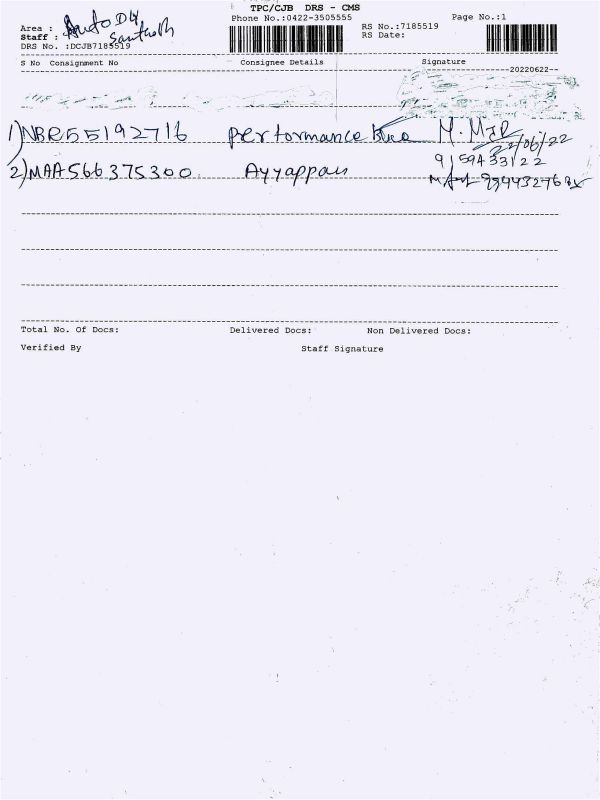 TPC/CJB DRS - CMS
Phone No.:0422-3505555
Page No.:1
Area : Auto DLY
Staff : Santhosh
RS No.:7185519
RS Date:
DRS No. :DCJB7185519
S No Consignment No Consignee Details Signature
20220622
1) NBR55192716 performance
22/06/22
2) MAA566375300 Ayyappan
Total No. Of Docs: Delivered Docs: Non Delivered Docs:
Verified By Staff Signature